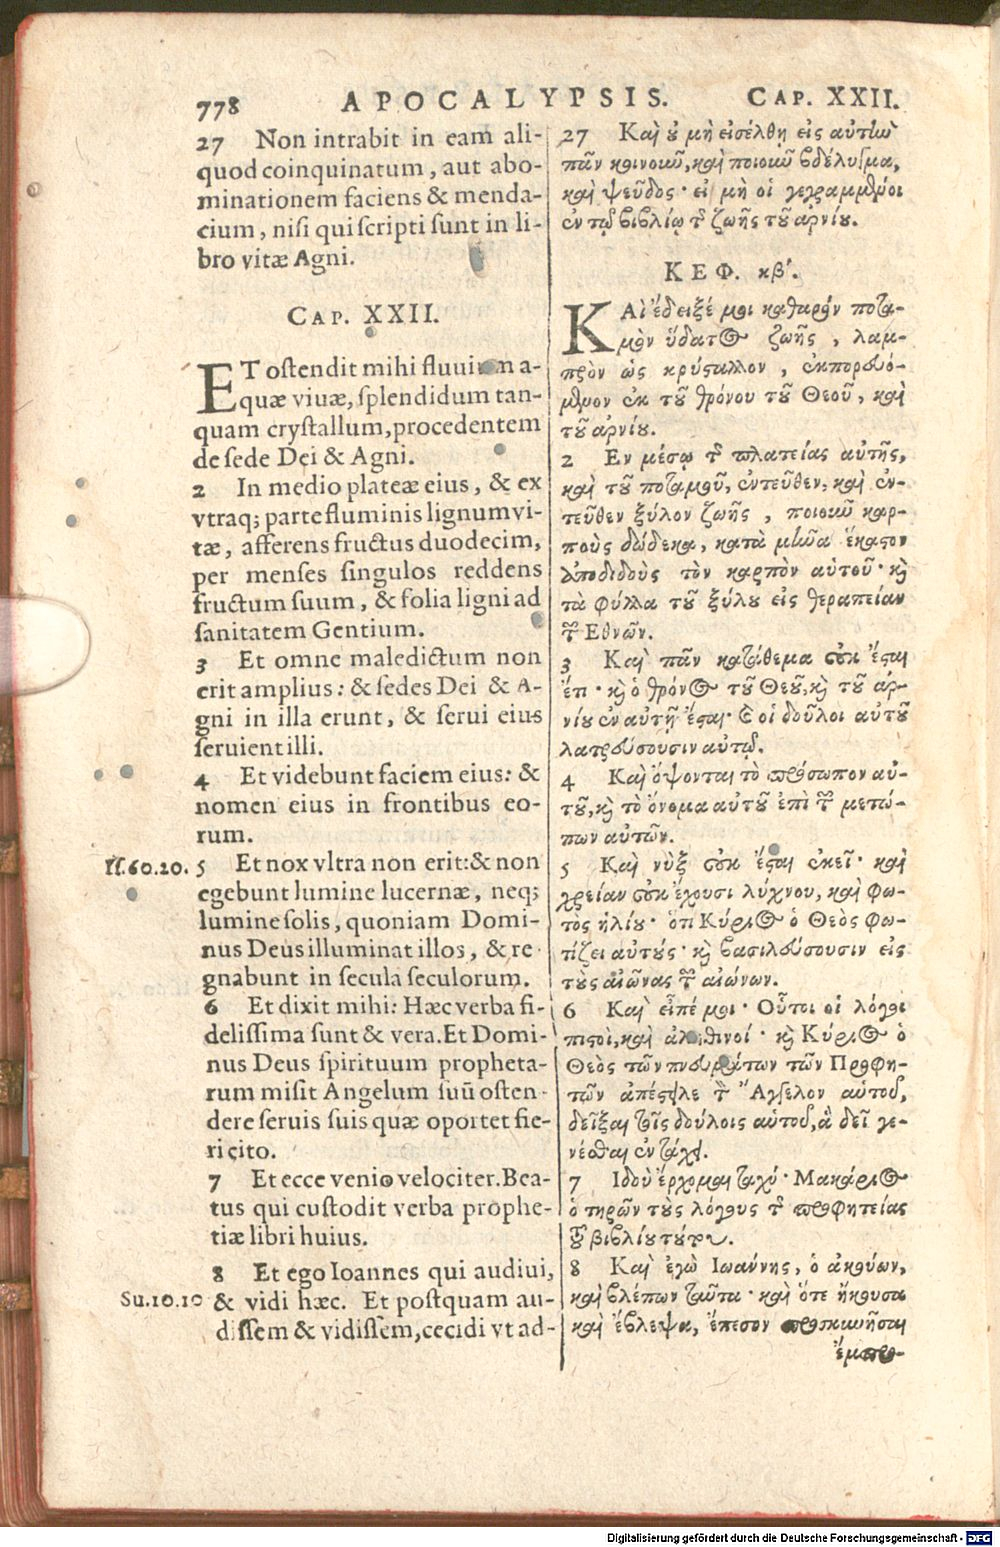 778 APOCALYPSIS. CAP. XXII.
27 Non intrabit in eam ali-
quod coinquinatum, aut abo-
minationem faciens & menda-
cium, nisi qui scripti sunt in li-
bro vitæ Agni.
CAP. XXII.
ET ostendit mihi fluvium a-
quæ viuæ, splendidum tan-
quam crystallum, procedentem
de sede Dei & Agni.
2 In medio plateæ eius, & ex
vtraq; parte fluminis lignum vi-
tæ, afferens fructus duodecim,
per menses singulos reddens
fructum suum, & folia ligni ad
sanitatem Gentium.
3 Et omne maledictum non
erit amplius: & sedes Dei & A-
gni in illa erunt, & serui eius
seruient illi.
4 Et videbunt faciem eius: &
nomen eius in frontibus eo-
rum.
If. 60.20. 5 Et nox vltra non erit: & non
egebunt lumine lucernæ, neq;
lumine solis, quoniam Domi-
nus Deus illuminat illos, & re-
gnabunt in secula seculorum.
6 Et dixit mihi: Hæc verba fi-
delissima sunt & vera. Et Domi-
nus Deus spirituum propheta-
rum misit Angelum suū osten-
dere seruis suis quæ oportet fie-
ri cito.
7 Et ecce venio velociter. Bea-
tus qui custodit verba prophe-
tiæ libri huius.
8 Et ego Ioannes qui audiui,
Su.10.10 & vidi hæc. Et postquam au-
dissem & vidissem, cecidi vt ad-
27 Καὶ οὐ μὴ εἰσέλθῃ εἰς αὐτὴν
πᾶν κοινοιοῦν, καὶ ποιοιοῦν βδέλυγμα,
καὶ ψεῦδος· εἰ μὴ οἱ γεγραμμένοι
ἐν τῷ βιβλίῳ τῆς ζωῆς τοῦ ἀρνίου.
ΚΕΦ. κβ΄.
ΚΑὶ ἔδειξέ μοι καθαρὸν ποτα-
μὸν ὕδατος ζωῆς, λαμ-
πρὸν ὡς κρύσταλλον, ἐκπορευό-
μενον ἐκ τοῦ θρόνου τοῦ Θεοῦ, καὶ
τοῦ ἀρνίου.
2 Εν μέσῳ τῆς πλατείας αὐτῆς,
καὶ τοῦ ποταμοῦ, ἐντεῦθεν, καὶ ἐν-
τεῦθεν ξύλον ζωῆς, ποιοῦν καρ-
ποὺς δώδεκα, κατὰ μῆνα ἕκαστον
ἀποδιδοὺς τὸν καρπὸν αὐτοῦ· καὶ
τὰ φύλλα τοῦ ξύλου εἰς θεραπείαν
τῶν Εθνῶν.
3 Καὶ πᾶν κατάθεμα οὐκ ἔσται
ἔτι· καὶ ὁ θρόνος τοῦ Θεοῦ, καὶ τοῦ ἀρ-
νίου ἐν αὐτῇ ἔσται· καὶ οἱ δοῦλοι αὐτοῦ
λατρεύσουσιν αὐτῷ.
4 Καὶ ὄψονται τὸ πρόσωπον αὐ-
τοῦ, καὶ τὸ ὄνομα αὐτοῦ ἐπὶ τῶν μετώ-
πων αὐτῶν.
5 Καὶ νὺξ οὐκ ἔσται ἐκεῖ· καὶ
χρείαν οὐκ ἔχουσι λύχνου, καὶ φω-
τὸς ἡλίου· ὅτι Κύριος ὁ Θεὸς φω-
τίζει αὐτούς· καὶ βασιλεύσουσιν εἰς
τοὺς αἰῶνας τῶν αἰώνων.
6 Καὶ εἶπέ μοι· Οὗτοι οἱ λόγοι
πιστοὶ, καὶ ἀληθινοί· καὶ Κύριος ὁ
Θεὸς τῶν πνευμάτων τῶν Προφη-
τῶν ἀπέστειλε τὸν Ἄγγελον αὑτοῦ,
δεῖξαι τοῖς δούλοις αὑτοῦ, ἃ δεῖ γε-
νέσθαι ἐν τάχει.
7 Ιδοὺ ἔρχομαι ταχύ· Μακάριος
ὁ τηρῶν τοὺς λόγους τῆς προφητείας
τοῦ βιβλίου τούτου.
8 Καὶ ἐγὼ Ιωάννης, ὁ ἀκούων,
καὶ βλέπων ταῦτα· καὶ ὅτε ἤκουσα
καὶ ἔβλεψα, ἔπεσον προσκυνῆσαι
ἔμπρο-
Digitalisierung gefördert durch die Deutsche Forschungsgemeinschaft - DFG